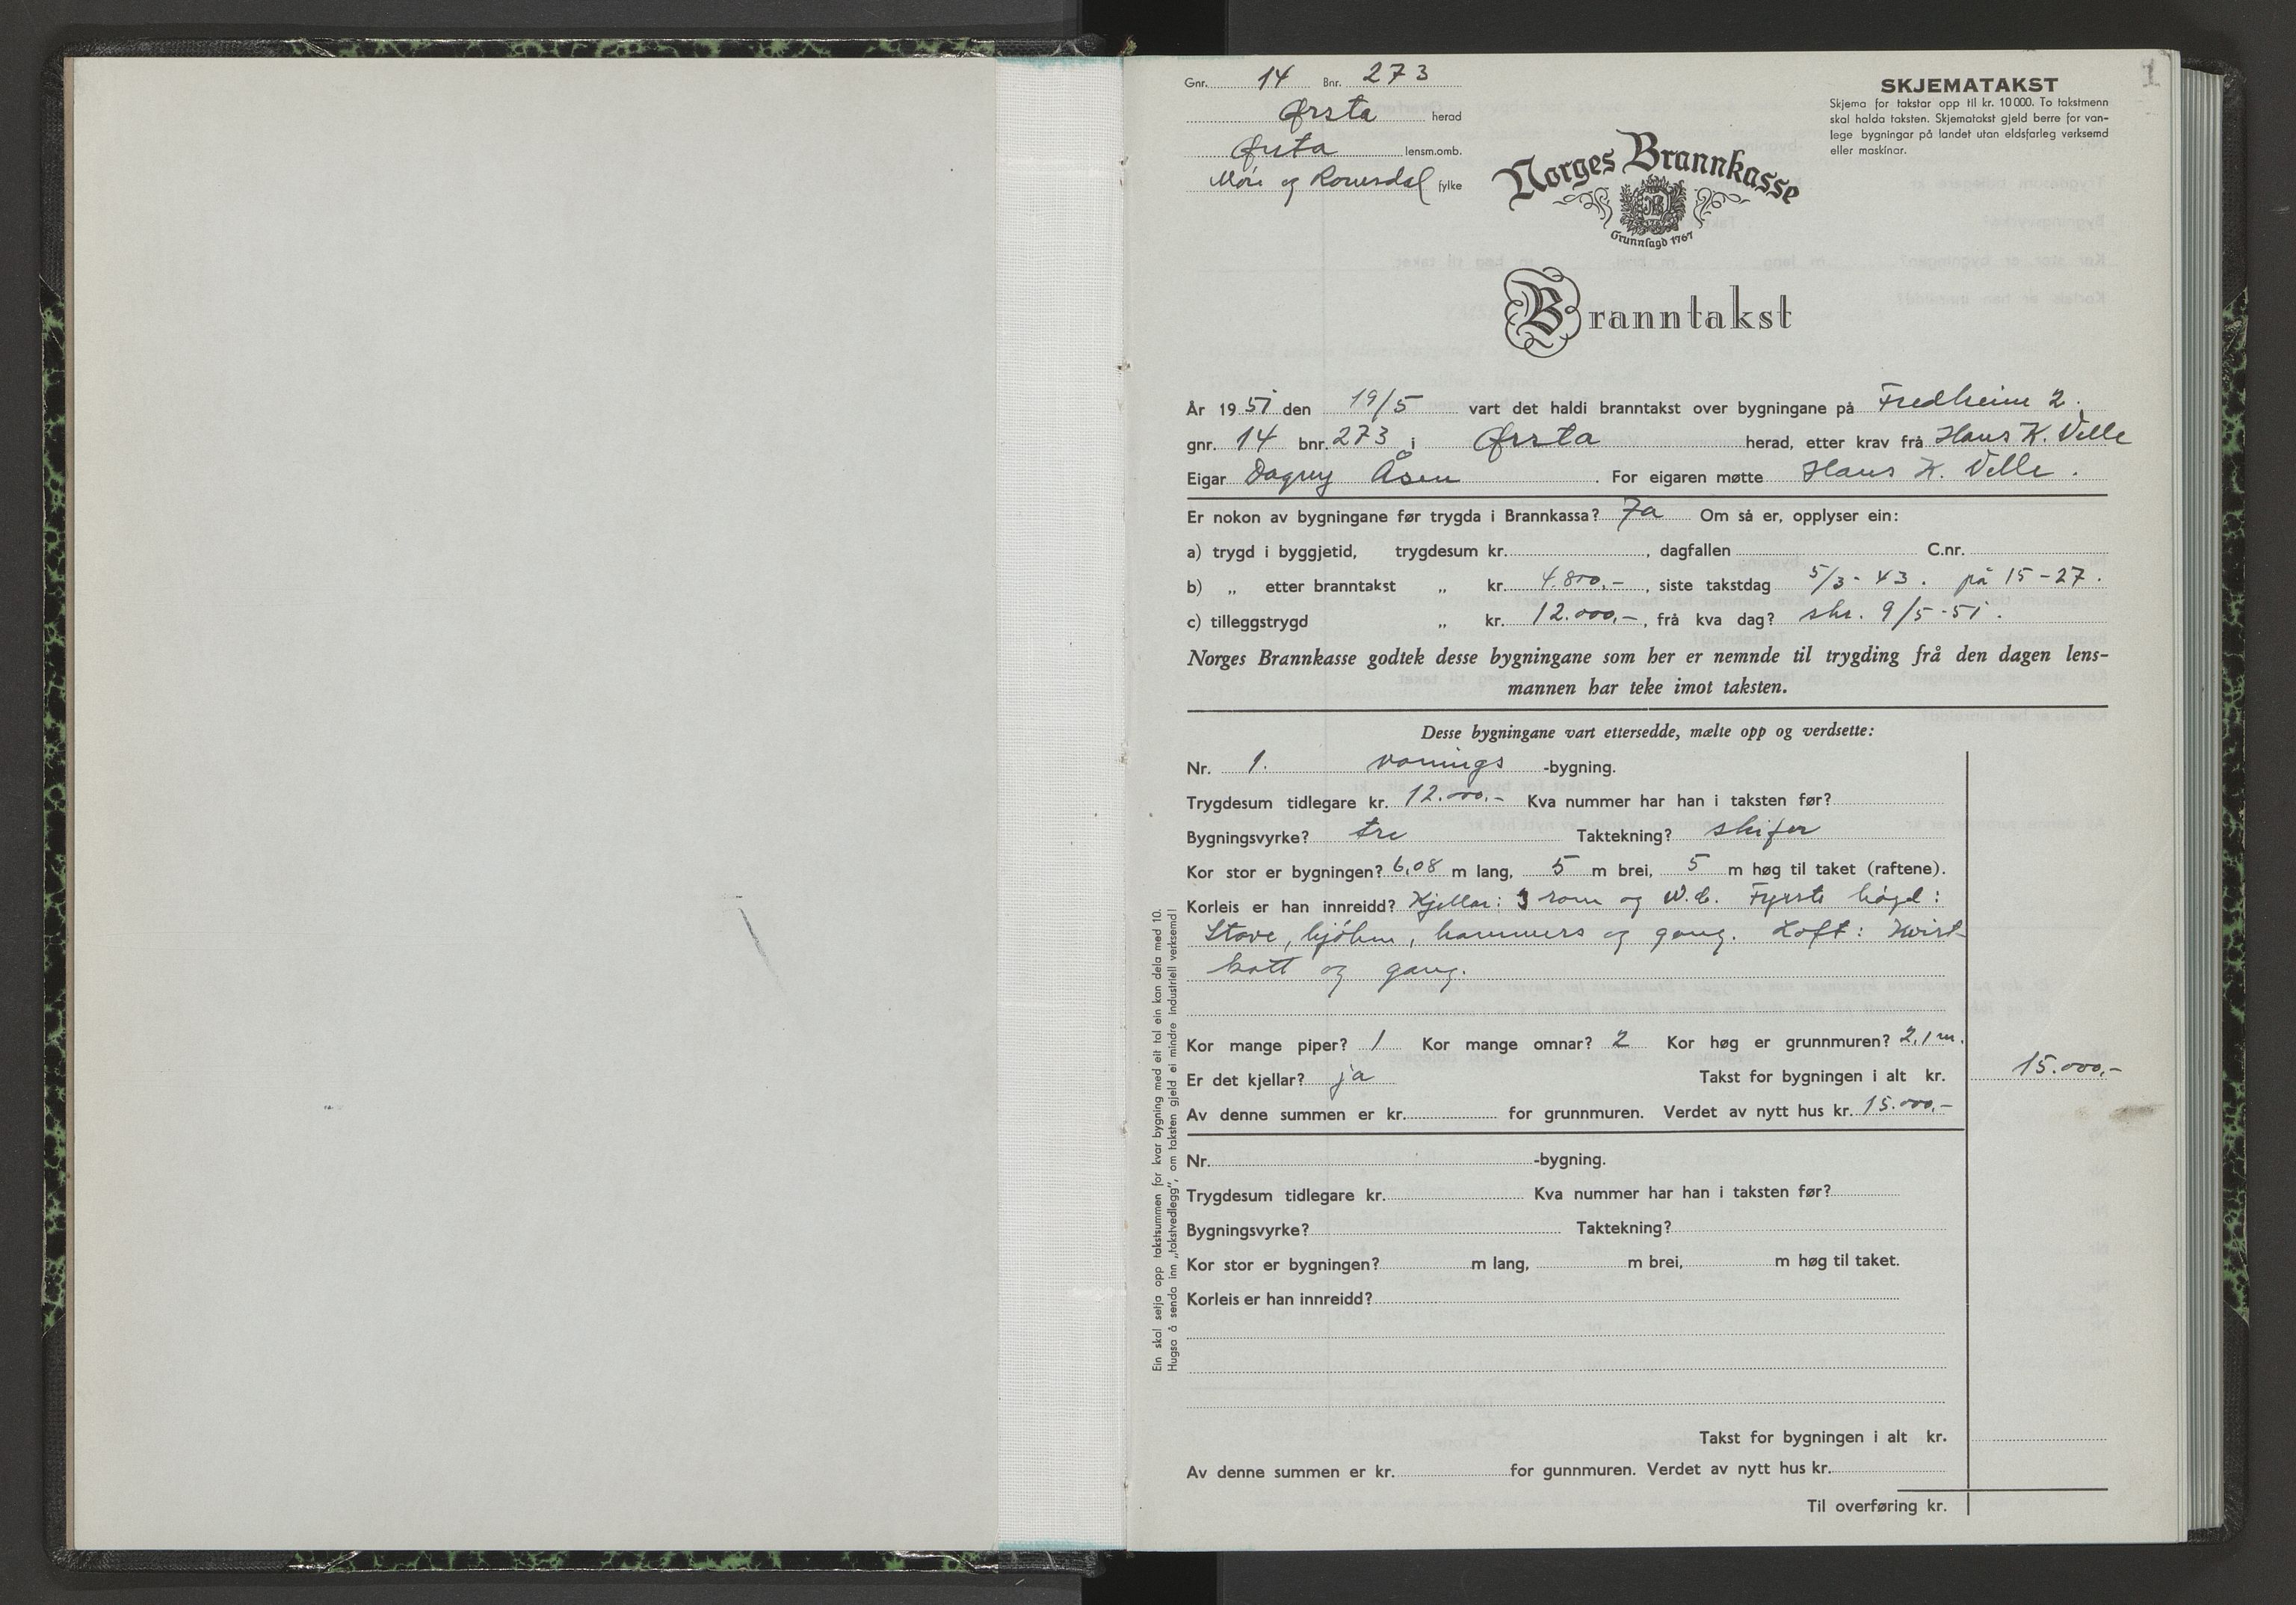 Gnr. 14 Bnr. 273
Ørsta herad
Ørsta lensm.omb.
Møre og Romsdal fylke
SKJEMATAKST
Skjema for takstar opp til kr. 10 000. To takstmenn
skal halda taksten. Skjematakst gjeld berre for van-
lege bygningar på landet utan eldsfarleg verksemd
eller maskinar.
1
Norges Brannkasse
Grunnlagd 1767
Branntakst
År 1951 den 19/5 vart det haldi branntakst over bygningane på Fredheim 2.
gnr. 14 bnr. 273 i Ørsta herad, etter krav frå Hans K. Velle
Eigar Dagny Åsen . For eigaren møtte Hans K. Velle .
Er nokon av bygningane før trygda i Brannkassa? Ja Om så er, opplyser ein:
a) trygd i byggjetid, trygdesum kr. , dagfallen C.nr.
b) „ etter branntakst „ kr. 4.800,- , siste takstdag 5/3 - 43 . på 15-27 .
c) tilleggstrygd „ kr. 12.000,- , frå kva dag? skr. 9/5-51 .
Norges Brannkasse godtek desse bygningane som her er nemnde til trygding frå den dagen lens-
mannen har teke imot taksten.
Desse bygningane vart ettersedde, mælte opp og verdsette:
Nr. 1. vonings -bygning.
Trygdesum tidlegare kr. 12.000.- Kva nummer har han i taksten før?
Bygningsvyrke? tre Taktekning? skifer
Kor stor er bygningen? 6,08 m lang, 5 m brei, 5 m høg til taket (raftene).
Korleis er han innreidd? Kjellar: 3 rom og W.C. Fyrste høgd:
Stove, kjøken, kammers og gang. Loft: Kvist-
kott og gang.
Kor mange piper? 1 Kor mange omnar? 2 Kor høg er grunnmuren? 2,1 m.
Er det kjellar? ja Takst for bygningen i alt kr. 15.000,-
Av denne summen er kr. for grunnmuren. Verdet av nytt hus kr. 15.000,-
Nr. -bygning.
Trygdesum tidlegare kr. Kva nummer har han i taksten før?
Bygningsvyrke? Taktekning?
Kor stor er bygningen? m lang, m brei, m høg til taket.
Korleis er han innreidd?
Takst for bygningen i alt kr.
Av denne summen er kr. for gunnmuren. Verdet av nytt hus kr.
Til overføring kr.
Ein skal setja opp takstsummen for kvar bygning med eit tol ein kan dela med 10.
Hugsa å senda inn „takstvedlegg", om taksten gjeld ei mindre industriell verksemd!